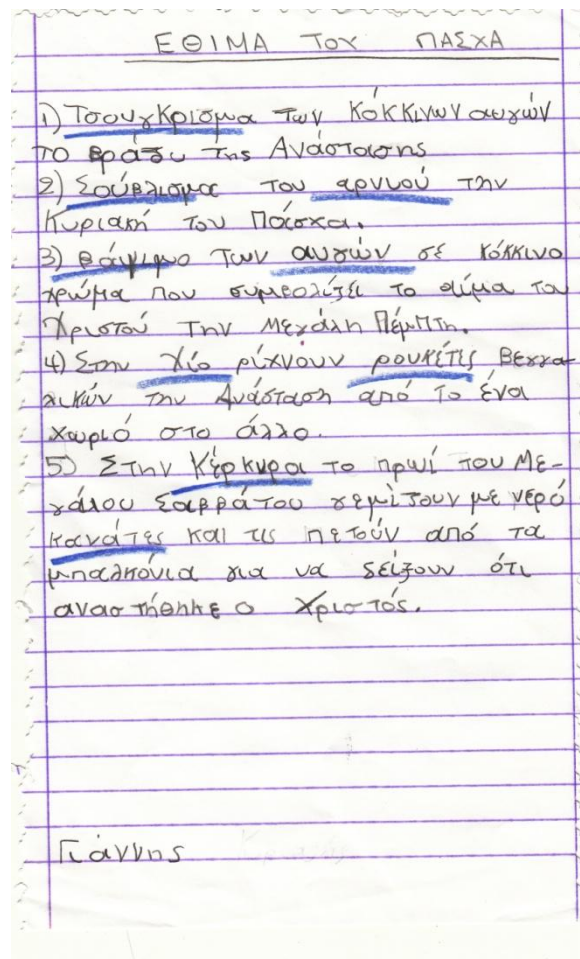 ΕΘΙΜΑ ΤΟΥ ΠΑΣΧΑ
1) Τσουγκρισμα των κόκκινων αυγών
το βράδυ της Ανάστασης
2) Σούβλισμα του αρνιού την
Κυριακή του Πάσχα.
3) Βάψιμο των αυγών σε κόκκινο
χρώμα που συμβολίζει το αίμα του
Χριστού την Μεγάλη Πέμπτη.
4) Στην Χίο ρίχνουν ρουκέτες βεγγα-
λικών την Ανάσταση από το ένα
χωριό στο άλλο.
5) Στην Κέρκυρα το πρωί του Με-
γάλου Σαββάτου γεμίζουν με νερό
κανάτες και τις πετούν από τα
μπαλκόνια για να δείξουν ότι
αναστήθηκε ο Χριστός.
Γιάννης